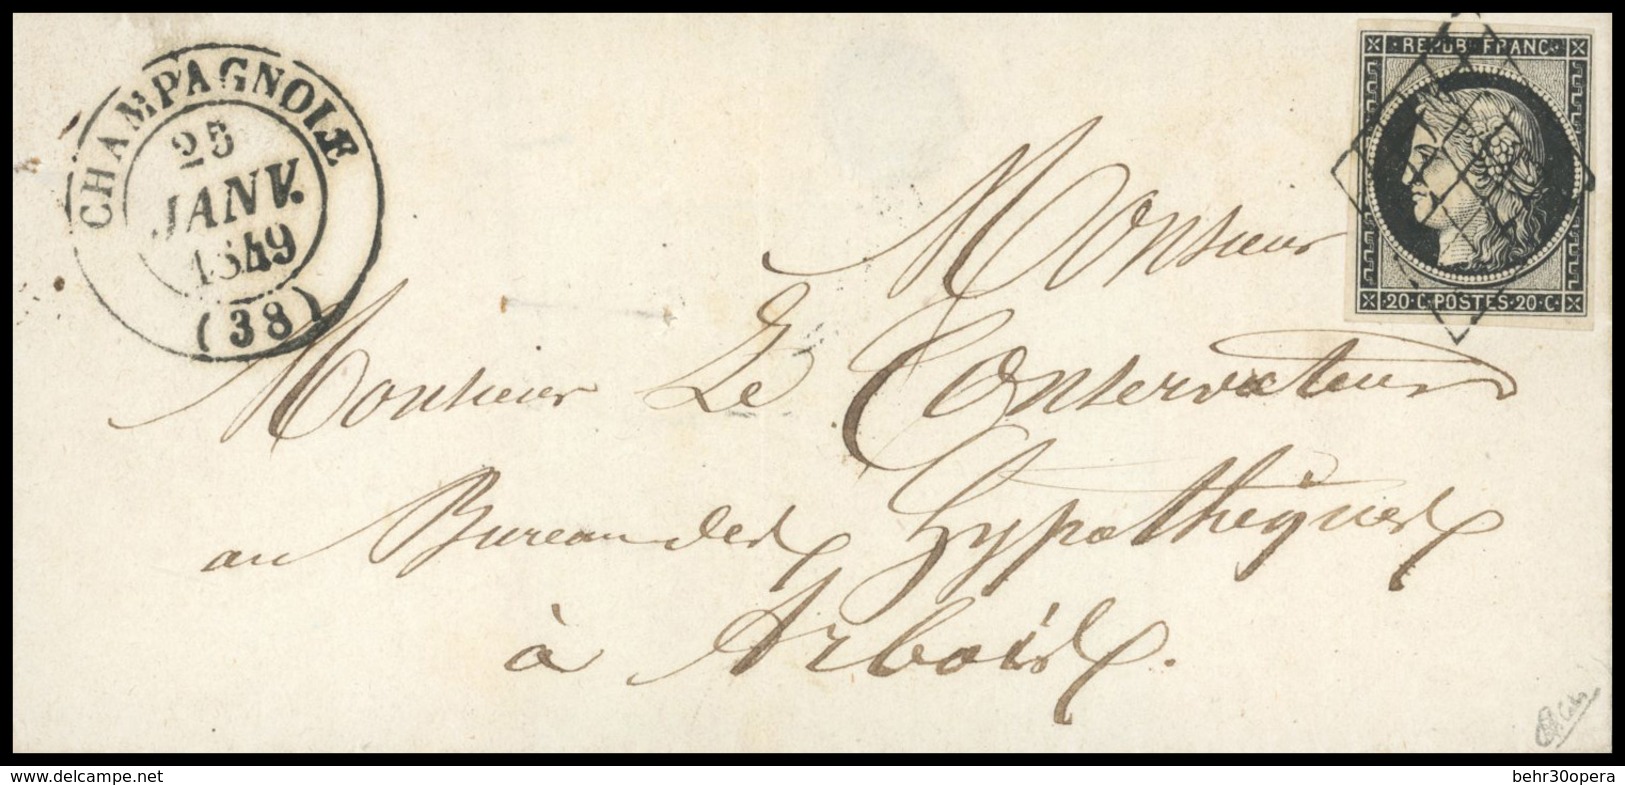 CHAMPAGNOLE
25
JANV.
1849
(38)
REPUB. FRANC.
20·C·POSTES·20·C·
Monsieur
Monsieur Le Conservateur
au Bureau des hypothèques
à Arbois.
www.delcampe.net
behr30opera